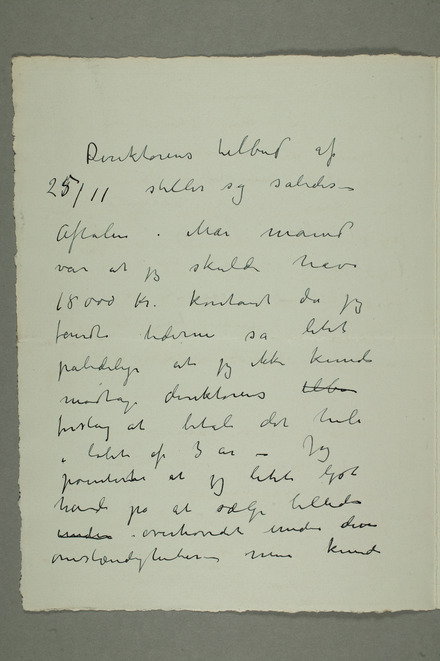 Direktörens tilbud af
25/11 stiller sig således
Aftalen i Mai maaned
var at jeg skulde have
18000 Kr. kontant da jeg
fandt tiderne så lidet
pålidelige at jeg ikke kunde
modtage direktörens tilbu
forslag at betale det hele
i løbet af 3 år – Jeg
pointerte at jeg lidet
på at sælge billede
under overhovedet under disse
omstændigheder men kunde